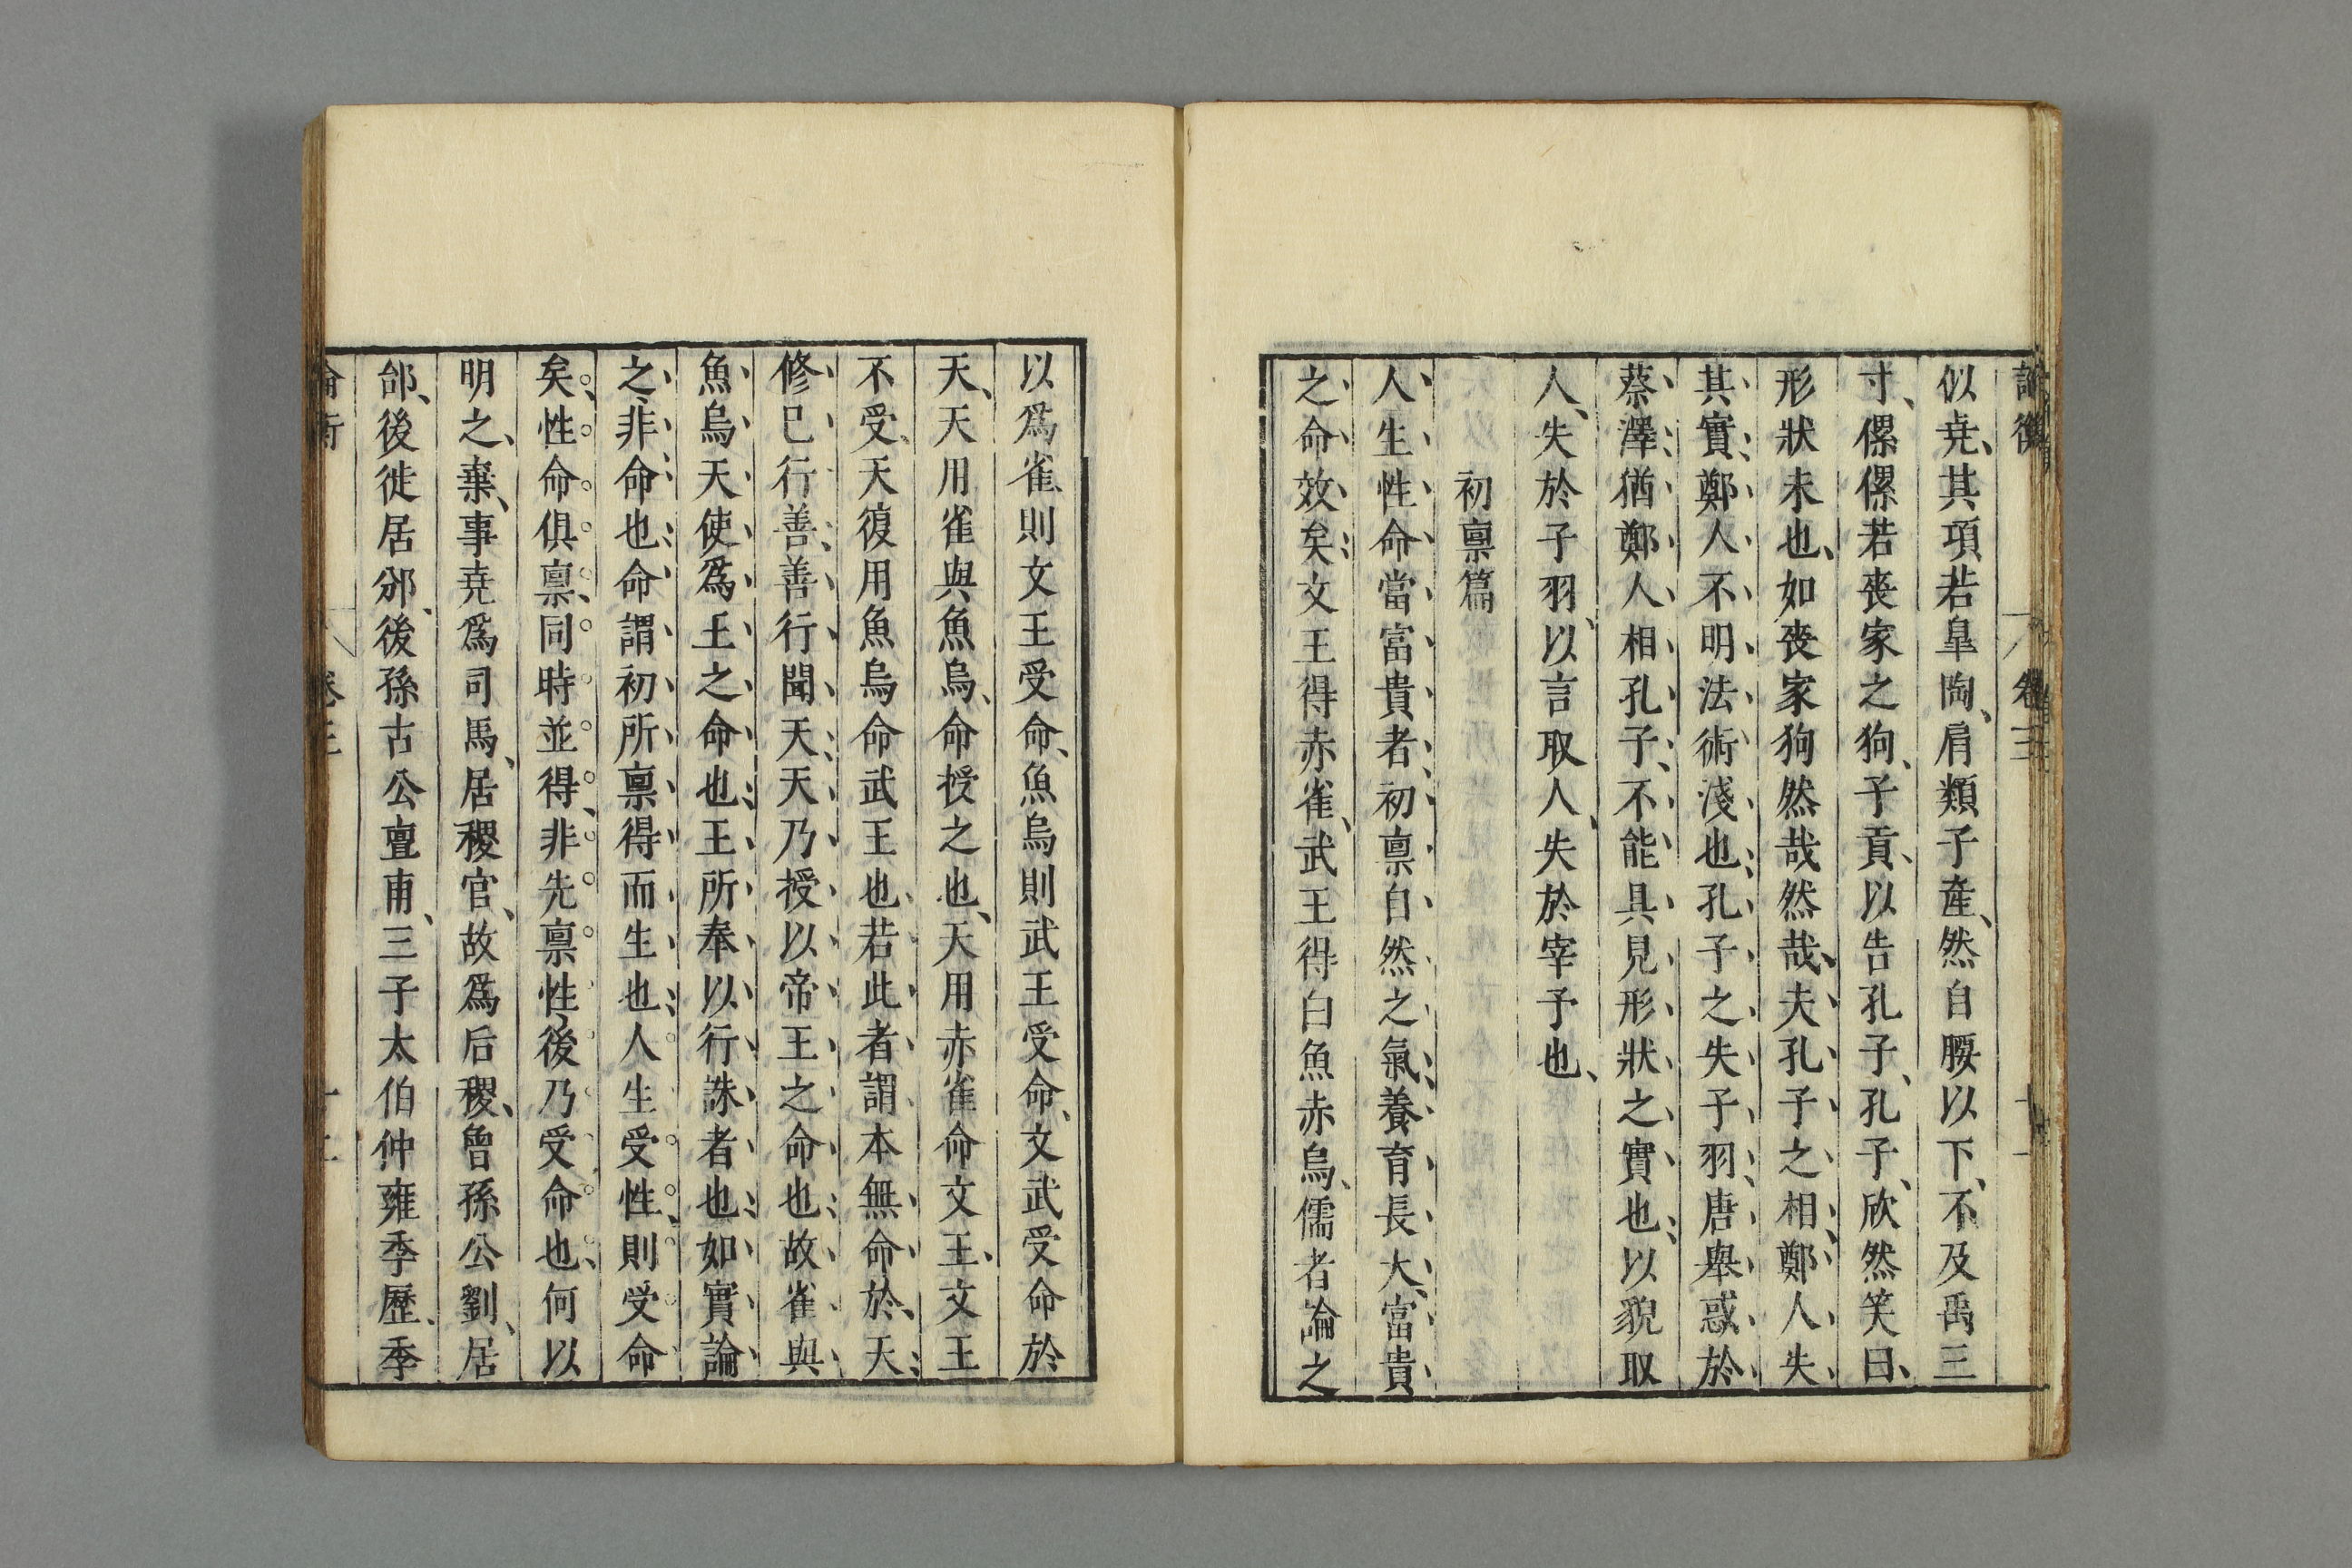 論衡 卷三 十一
似堯、其項若臯陶、肩類子產、然自腰以下、不及禹三
寸、傫傫若喪家之狗、子貢、以告孔子、孔子、欣然笑曰、
形狀未也、如喪家狗然哉然哉、夫孔子之相、鄭人失
其實、鄭人不明法術淺也、孔子之失子羽、唐舉惑於
蔡澤、猶鄭人相孔子、不能具見形狀之實也、以貌取
人、失於子羽、以言取人、失於宰予也、
初禀篇
人生性命當富貴者、初禀自然之氣、養育長大、富貴
之命效矣、文王得赤雀、武王得白魚赤烏、儒者論之
以爲雀、則文王受命、魚烏則武王受命、文武受命於
天、天用雀與魚烏、命授之也、天用赤雀命文王、文王
不受、天復用魚烏命武王也、若此者、謂本無命於天、
修已行善、善行聞天、天乃授以帝王之命也、故雀與
魚烏、天使爲王之命也、王所奉以行誅者也、如實論
之、非命也、命謂初所禀得而生也、人生受性、則受命
矣、性命俱禀、同時並得、非先禀性、後乃受命也、何以
明之、棄、事堯爲司馬、居稷官、故爲后稷、曾孫公劉、居
邰、後徙居邠、後孫古公亶甫、三子太伯仲雍季歷、季
論衡 卷三 十二